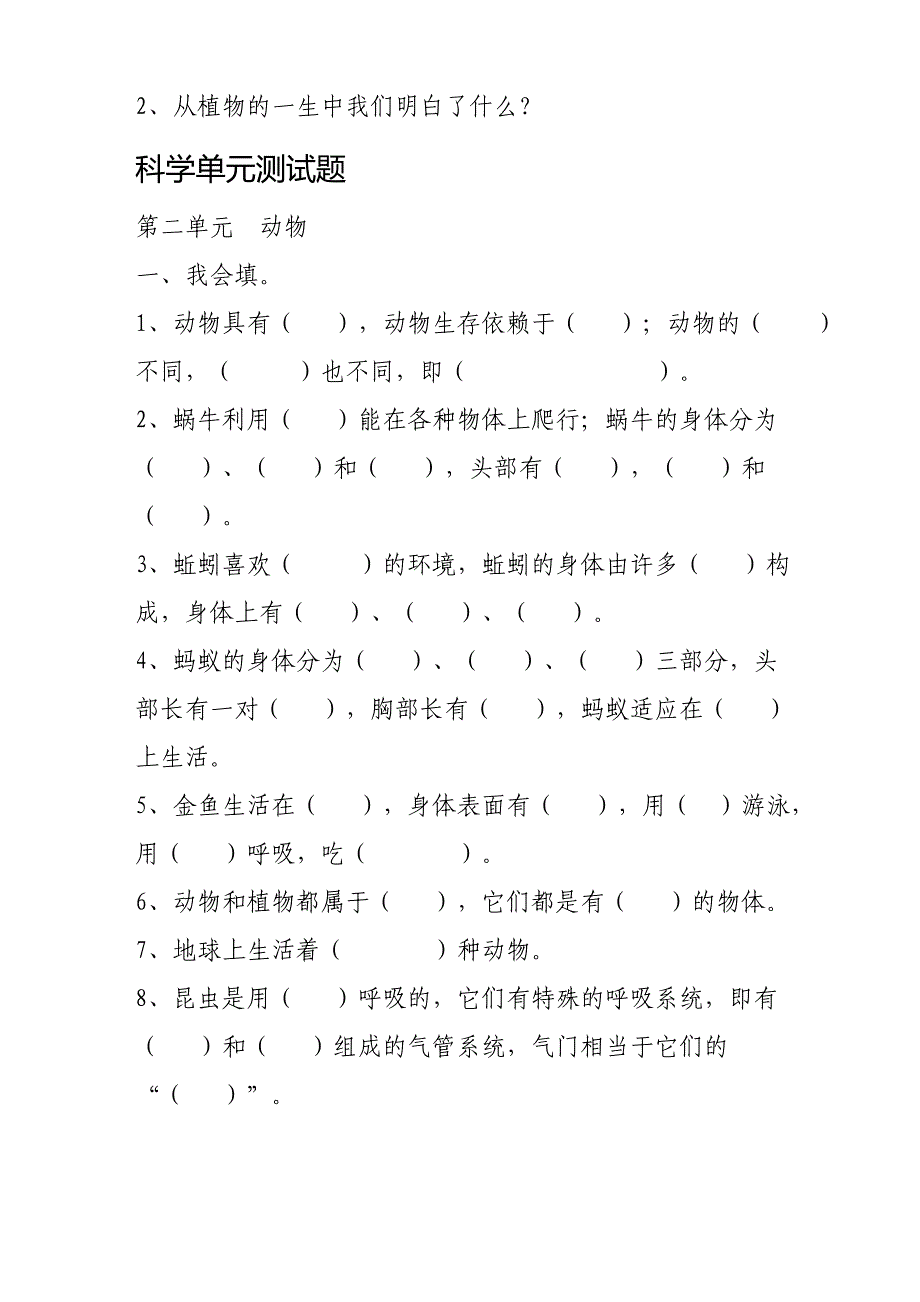 2、从植物的一生中我们明白了什么？
科学单元测试题
第二单元　动物
一、我会填。
1、动物具有（　），动物生存依赖于（　）；动物的（　　）
不同，（　　）也不同，即（　　　　　　）。
2、蜗牛利用（　）能在各种物体上爬行；蜗牛的身体分为
（　）、（　）和（　），头部有（　），（　）和
（　）。
3、蚯蚓喜欢（　　）的环境，蚯蚓的身体由许多（　）构
成，身体上有（　）、（　）、（　）。
4、蚂蚁的身体分为（　）、（　）、（　）三部分，头
部长有一对（　），胸部长有（　），蚂蚁适应在（　）
上生活。
5、金鱼生活在（　），身体表面有（　），用（　）游泳，
用（　）呼吸，吃（　　　）。
6、动物和植物都属于（　），它们都是有（　）的物体。
7、地球上生活着（　　　）种动物。
8、昆虫是用（　）呼吸的，它们有特殊的呼吸系统，即有
（　）和（　）组成的气管系统，气门相当于它们的
“（　）”。